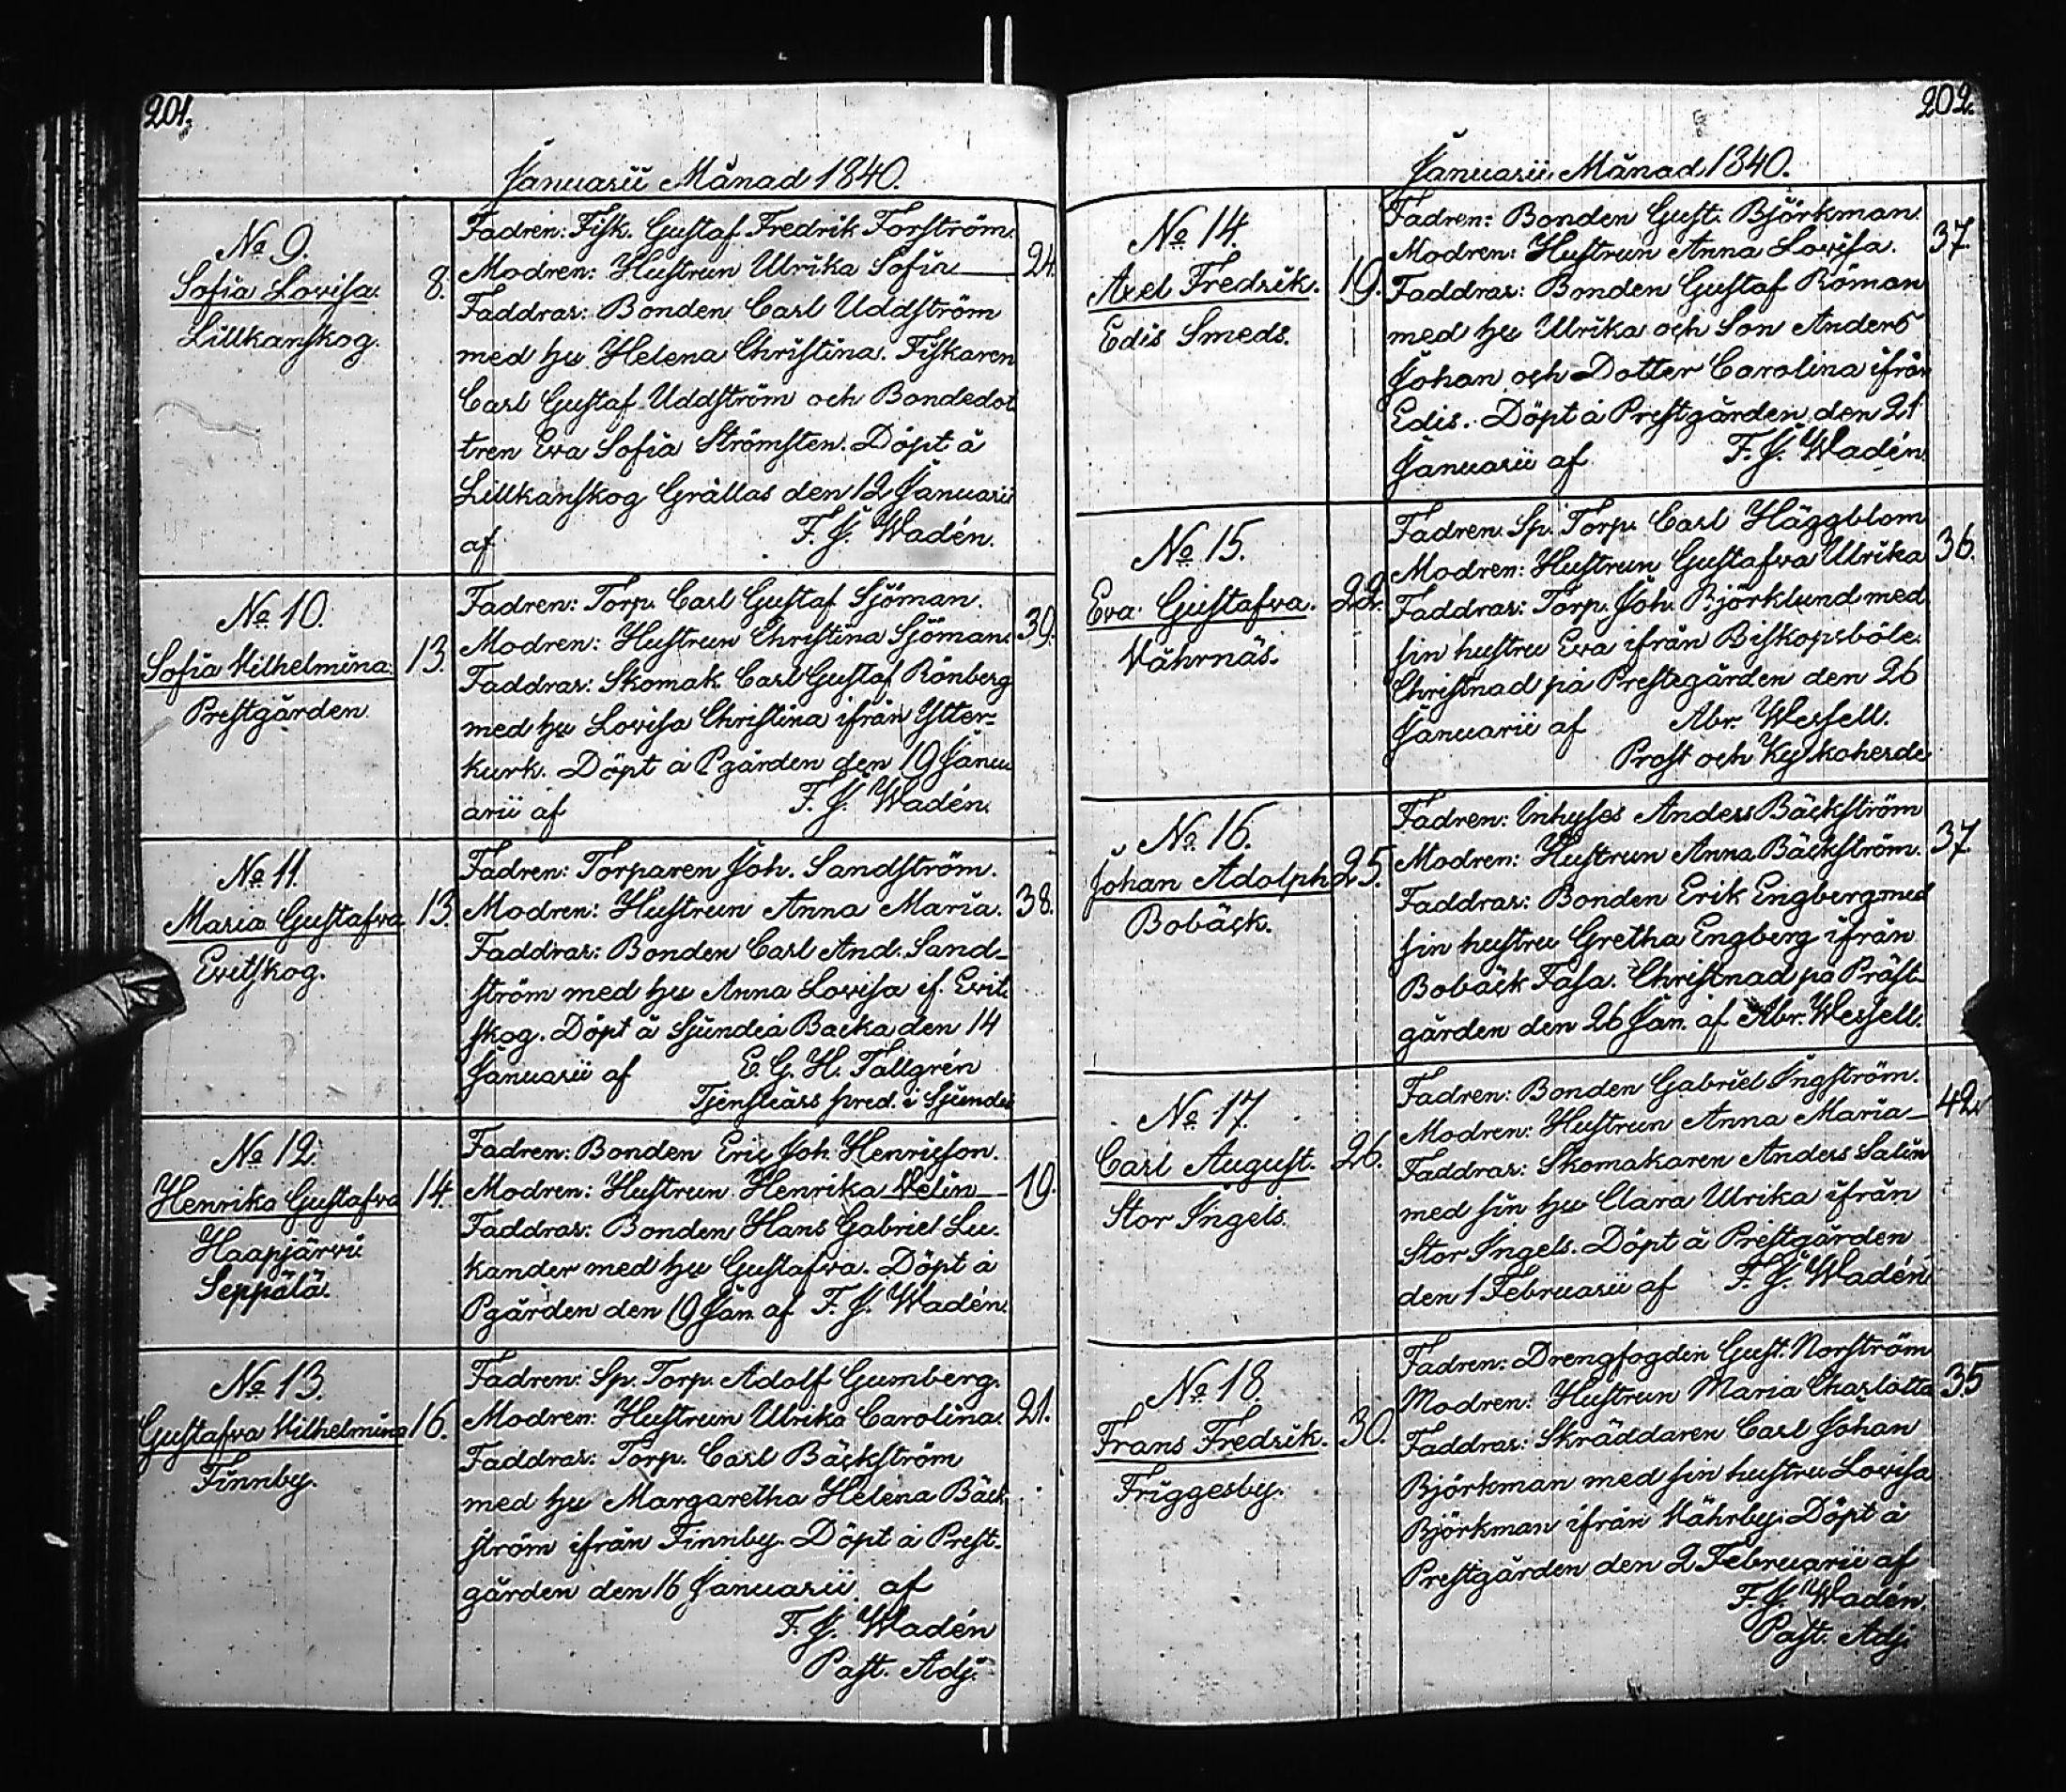 201.
Januarii Månad 1840.
No 9.
Sofia Lovisa.
Lillkanskog.
8.
Fadren: Fisk. Gustaf Fredrik Forström.
Modren: Hustrun Ulrika Sofia
24.
Faddrar: Bonden Carl Uddström
med hu Helena Christina. Fiskaren
Carl Gustaf Uddström och Bondedot
tren Eva Sofia Strömsten. Döpt å
Lillkanskog Grållas den 12 Januarii
af F. J. Wadén.
No 10.
Sofia Wilhelmina.
Prestgården.
13.
Fadren: Torp. Carl Gustaf Sjöman.
Modren: Hustrun Christina Sjöman.
39.
Faddrar: Skomak. Carl Gustaf Rönberg
med hu Lovisa Christina ifrån Ytter-
kurk. Döpt å Pgården den 19 Janu
arii af F. J. Wadén.
No 11.
Maria Gustafva
Evitskog.
13.
Fadren: Torparen Joh. Sandström.
Modren: Hustrun Anna Maria.
38.
Faddrar: Bonden Carl And. Sand-
ström med hu Anna Lovisa if. Evit
skog. Döpt å Sjundeå Backa den 14
Januarii af E. G. H. Tallgrén
Tjenstgörs pred. i Sjundeå
No 12.
Henrika Gustafva
Haapjärvii
Seppälä.
14.
Fadren: Bonden Eric Joh. Henricson.
Modren: Hustrun Henrika Velin
19.
Faddrar: Bonden Hans Gabriel Lu-
kander med hu Gustafva. Döpt å
Pgården den 19 Jan. af F. J. Wadén.
No 13.
Gustafva Wilhelmina
Finnby.
16.
Fadren: Sp. Torp. Adolf Gumberg.
Modren: Hustrun Ulrika Carolina.
21.
Faddrar: Torp. Carl Bäckström
med hu Margaretha Helena Bäck
ström ifrån Finnby. Döpt å Prest-
gården den 16 Januarii af
F. J. Wadén
Past. Adj.
202.
Januarii Månad 1840.
No 14.
Axel Fredrik.
Edis Smeds.
19.
Fadren: Bonden Gust. Björkman.
Modren: Hustrun Anna Lovisa.
37.
Faddrar: Bonden Gustaf Röman
med hu Ulrika och Son Anders
Johan och Dotter Carolina ifrån
Edis. Döpt å Prestgården den 21
Januarii af F. J. Wadén.
No 15.
Eva Gustafva.
Vährnäs.
22.
Fadren: Sp. Torp. Carl Häggblom
Modren: Hustrun Gustafva Ulrika
36.
Faddrar: Torp. Joh. Björklund med
sin hustru Eva ifrån Biskopsböle.
Christnad på Prestegården den 26
Januarii af Abr. Wessell.
Prost och Kyrkoherde
No 16.
Johan Adolph
Bobäck.
25.
Fadren: Inhyses Anders Bäckström
Modren: Hustrun Anna Bäckström.
37.
Faddrar: Bonden Erik Engberg med
sin hustru Gretha Engberg ifrån
Bobäck Fasa. Christnad på Präst-
gården den 26 Jan. af Abr. Wessell.
No 17.
Carl August.
Stor Ingels.
26.
Fadren: Bonden Gabriel Ingström.
Modren: Hustrun Anna Maria
42.
Faddrar: Skomakaren Anders Salin
med sin hu Clara Ulrika ifrån
Stor Ingels. Döpt å Prestgården
den 1 Februarii af F. J. Wadén
No 18.
Frans Fredrik.
Friggesby.
30.
Fadren: Drengfogden Gust. Norström
Modren: Hustrun Maria Charlotta
35
Faddrar: Skräddaren Carl Johan
Björkman med sin hustru Lovisa
Björkman ifrån Vährby. Döpt å
Prestgården den 2 Februarii af
F. J. Wadén.
Past. Adj.